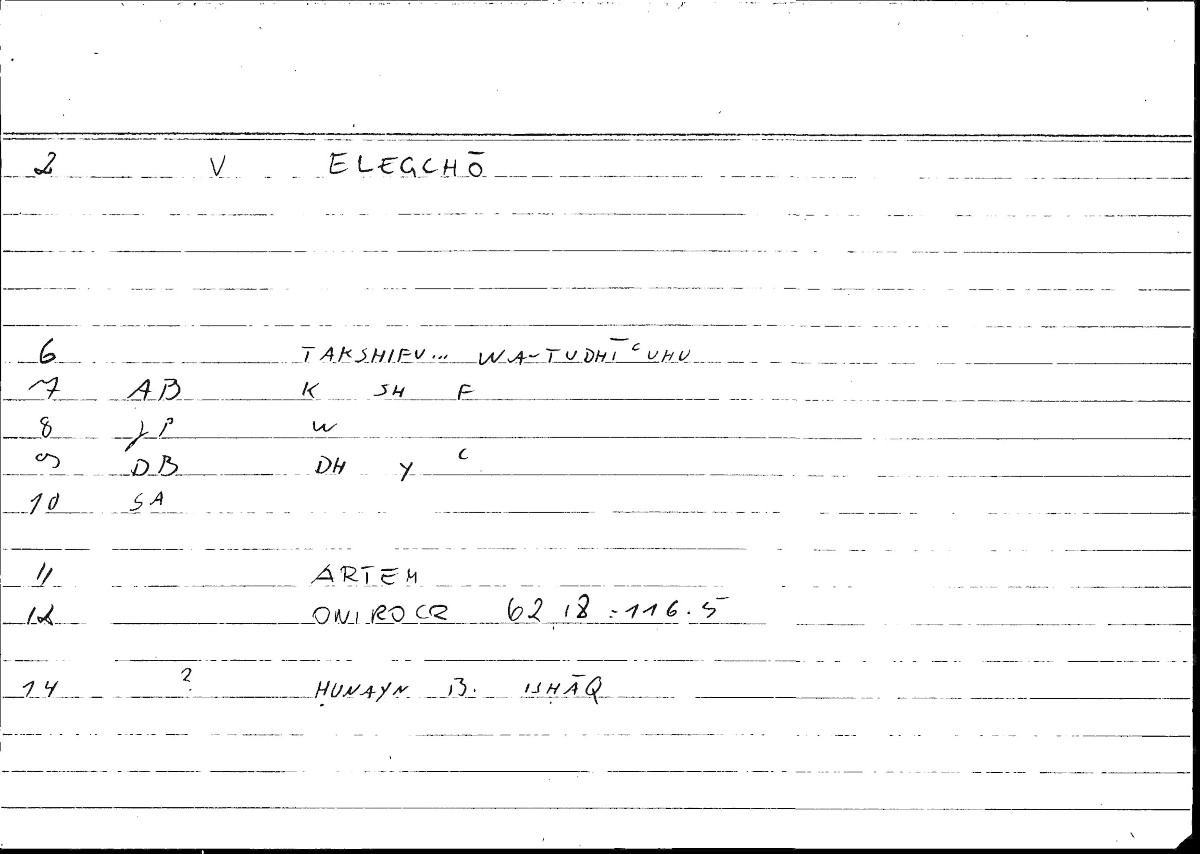 2 V ELEGCHŌ
6 TAKSHIFU... WA-TUDHĪʿUHU
7 AB K SH F
8 JP W
9 DB DH Y ʿ
10 SA
11 ARTEM
12 ONIROCR 62,18 = 116.5
14 ? ḤUNAYN B. ISḤĀQ